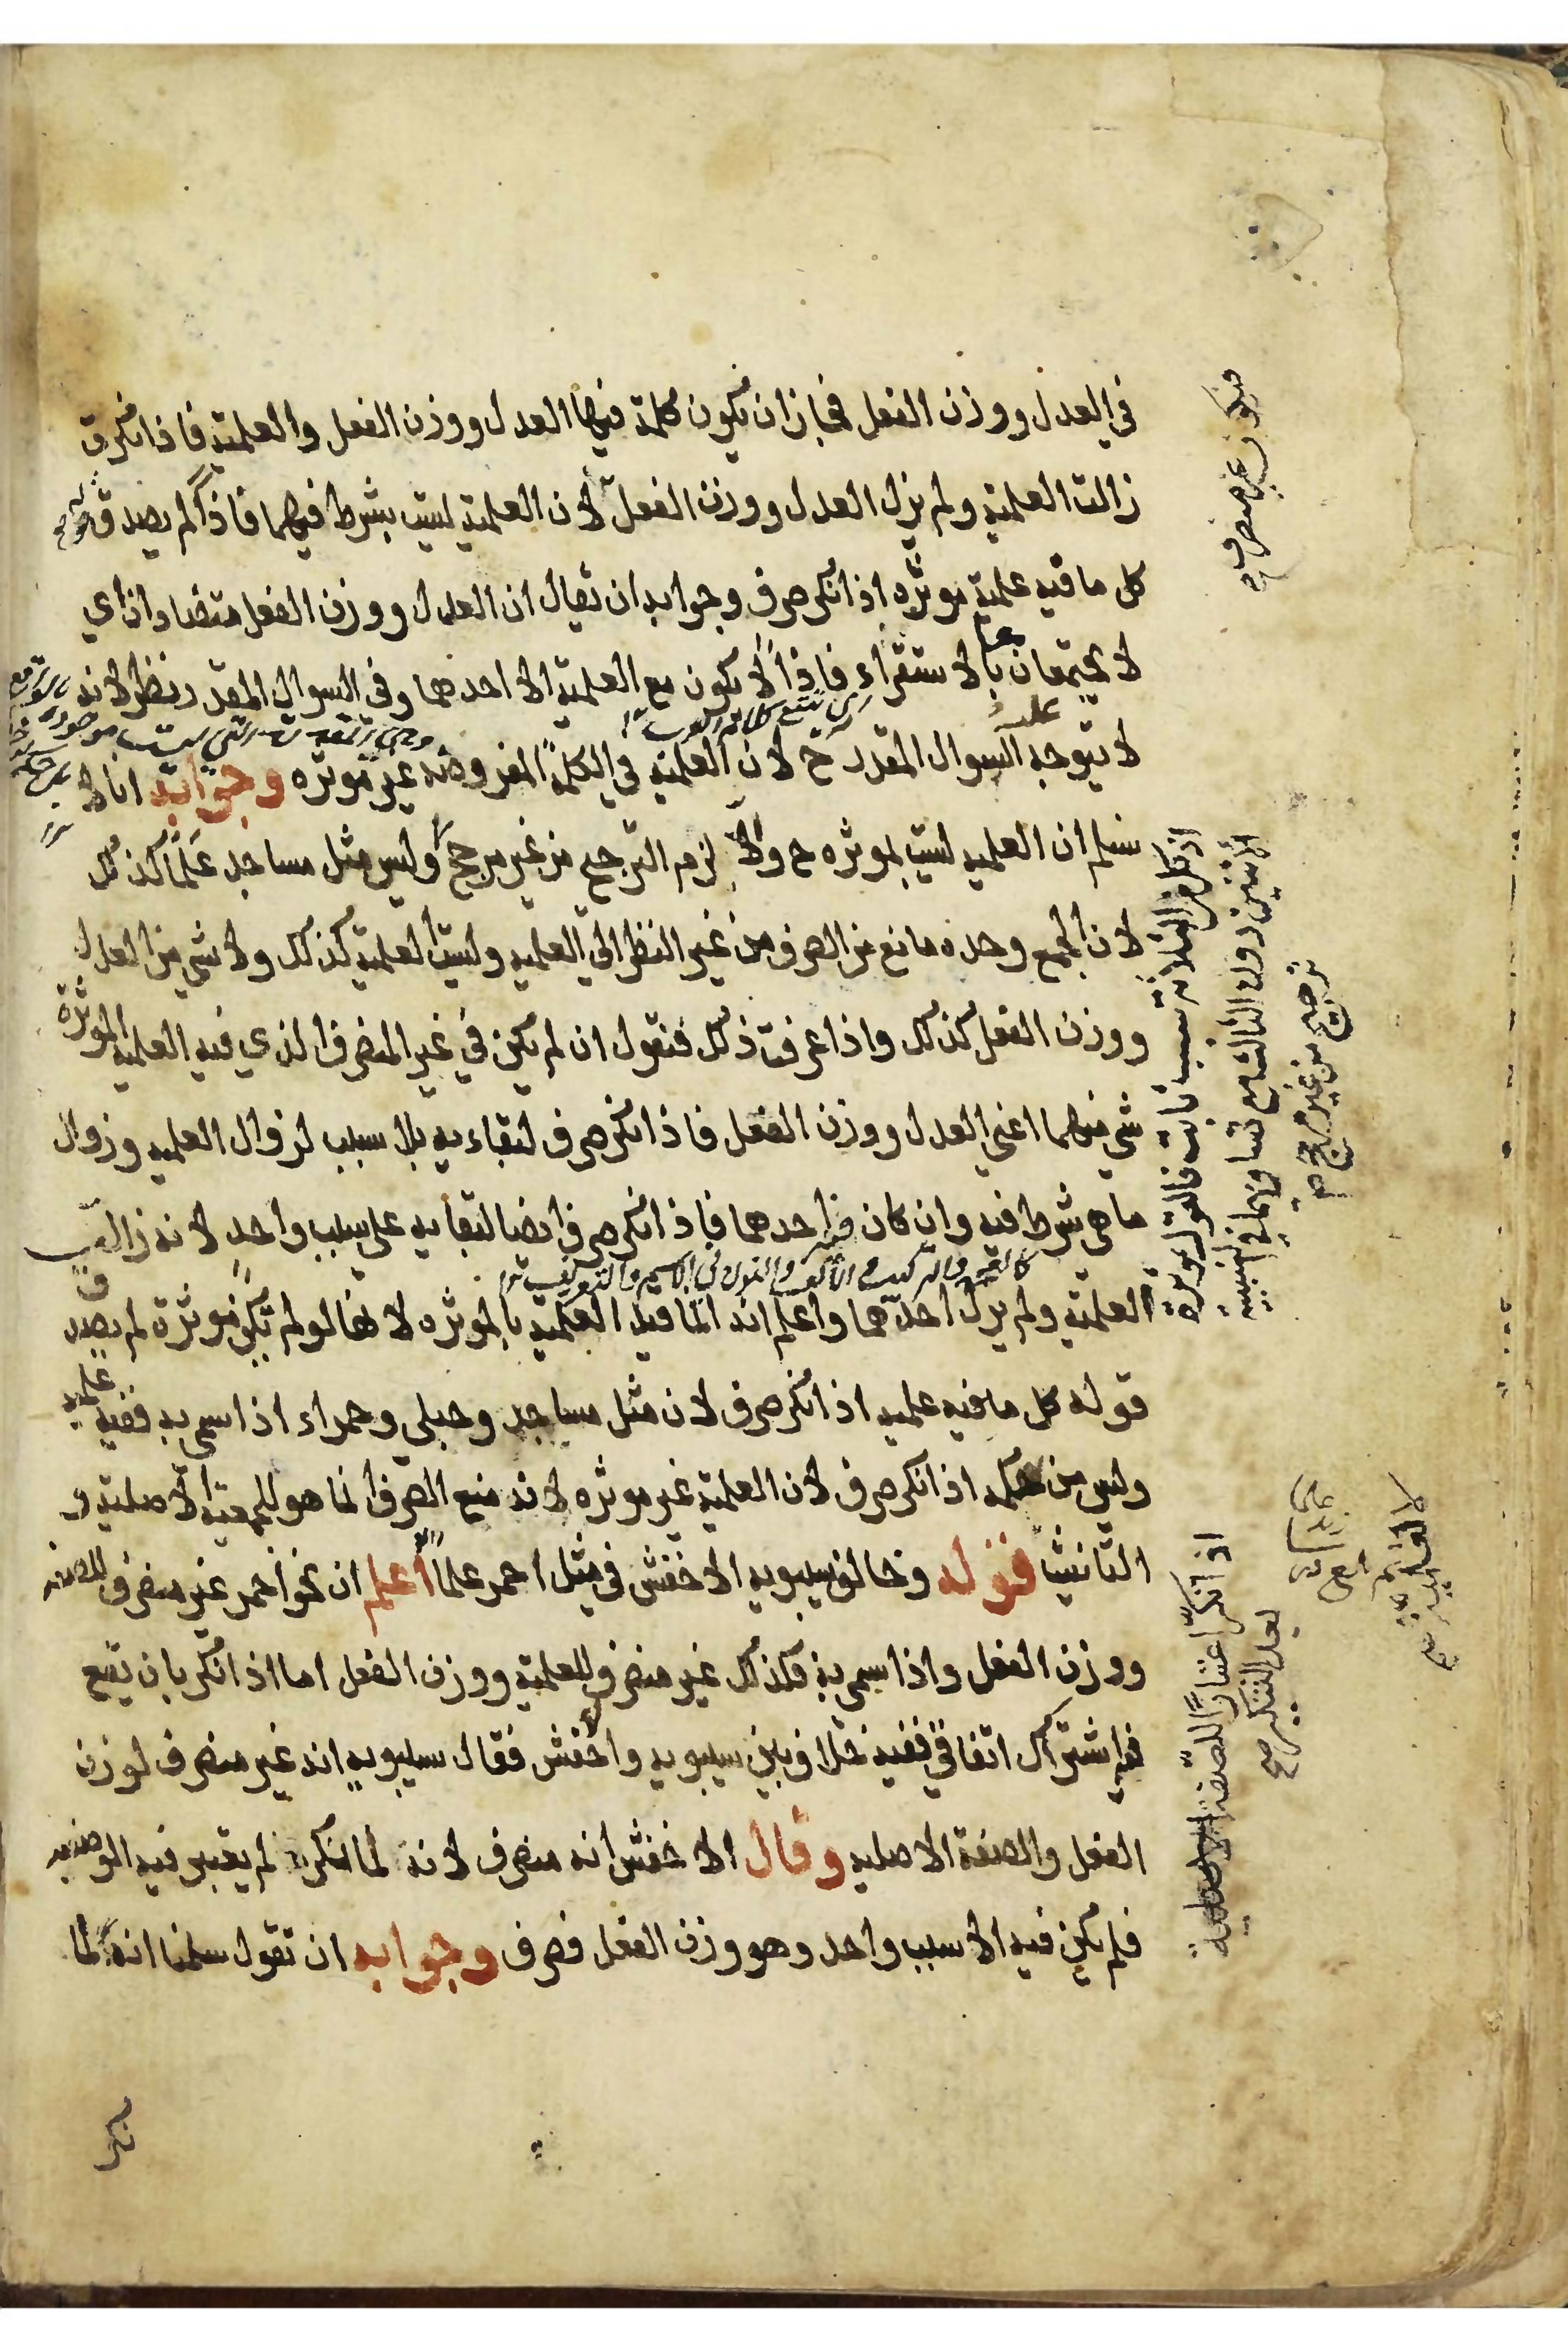 في العدل ووزن الفعل فجاز ان يكون كلمة فيها العدل ووزن الفعل والعلمية فاذا نكرت
زالت العلمية ولم يزل العدل ووزن الفعل لان العلمية ليست بشرط فيهما فاذا لم يصدق قوله
كل ما فيه علمية موثره اذا نكر صرف وجوابه ان يقال ان العدل ووزن الفعل متضادان اي
لا يجتمعان بالاستقراء فاذا لا يكون مع العلمية الا احدهما وفي السوال المقدر نظر لانه
لا يتوجه السوال المقدر ح لان العلمية في الكلمة المفروضة غير موثره وجوابه انا لا
نسلم ان العلمية ليست بموثره ح والا لزم الترجيح من غير مرجح وليس مثل مساجد علما كذلك
لان الجمع وحده مانع من الصرف من غير النظر الى العلميه وليست العلمية كذلك ولا شي من العدل
ووزن الفعل كذلك واذا عرفت ذلك فنقول ان لم يكن في غير المنصرف الذي فيه العلمية الموثرة
شي منهما اعني العدل ووزن الفعل فاذا نكر صرف لبقاءيه بلا سبب لزوال العلميه وزوال
ما هي شرط فيه وان كان فيه احدهما فاذا نكر صرف ايضا لبقايه على سبب واحد لانه زالت
العلمية ولم يزل احدهما واعلم انه انما قيد العلمية بالموثره لانها لو لم تكن موثرة لم يصدق
قوله كل ما فيه علميه اذا نكر صرف لان مثل مساجد وحبلى وحمراء اذا سمي به ففيه علميه
وليس من حكمه اذا نكر صرف لان العلمية غير موثره لانه منع الصرف انما هو للجمعية الاصلية و
التانيث قوله وخالف سيبويه الاخفش في مثل احمر علما اعلم ان نحو احمر غير منصرف للصفه
ووزن الفعل واذا سمي به فكذلك غير منصرف للعلمية ووزن الفعل اما اذا نكر بان يقع
فيه اشتراك اتفاقي ففيه خلاف بين سيبويه واخفش فقال سيبويه انه غير منصرف لوزن
الفعل والصفة الاصليه وقال الاخفش انه منصرف لانه لما نكر لم يعتبر فيه الوصفيه
فلم يكن فيه الا سبب واحد وهو وزن الفعل فصرف وجوابه ان تقول سلمنا انه لما
فيكون غير منصرف
الاثنين دون الثالث مع تساويهما في السببية
ترجيح من غير مرجح
اذا نكر اعتبارا للصفة الاصلية
بعد التنكير صح